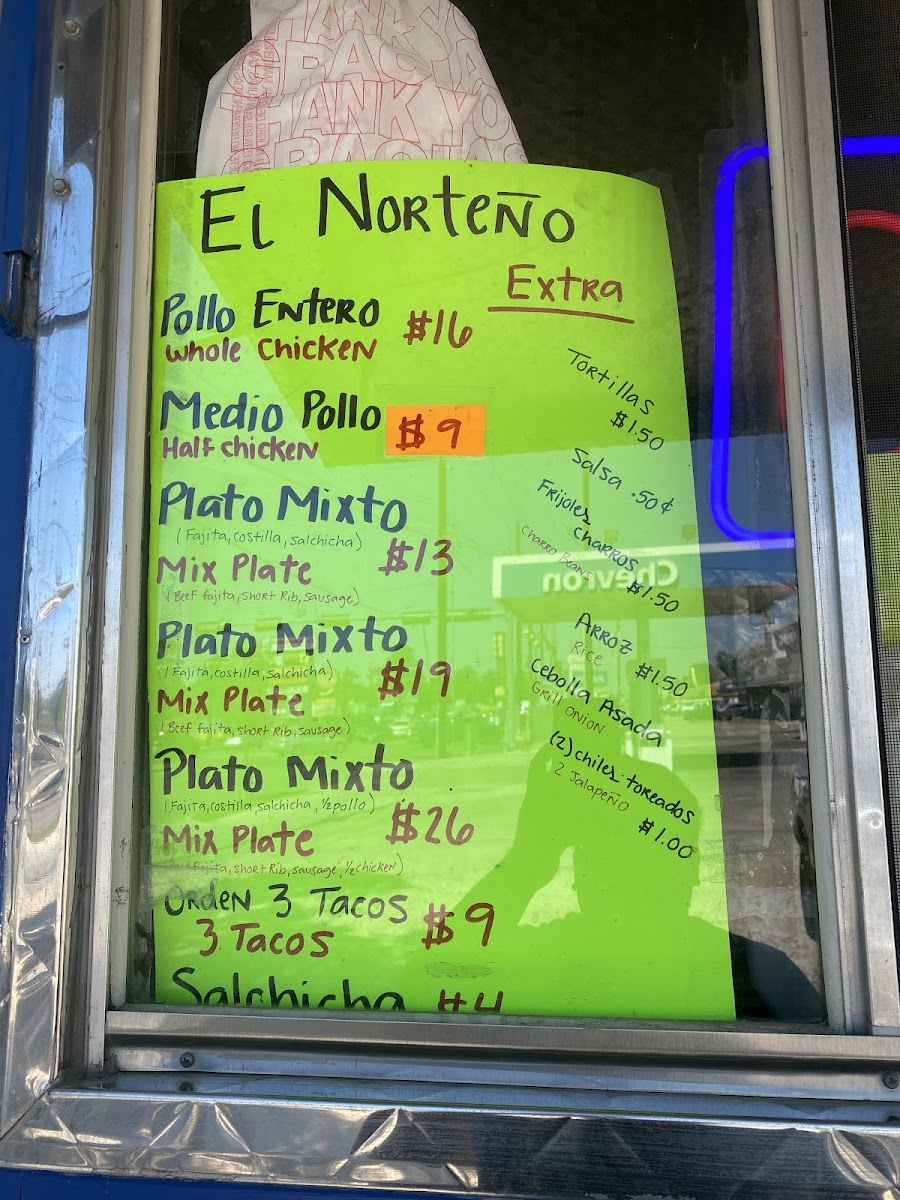 THANK YOU
GRACIAS
THANK YOU
GRACIAS
El Norteño
Extra
Pollo Entero $16
Whole Chicken
Medio Pollo $9
Half Chicken
Plato Mixto
(Fajita, costilla, salchicha)
$13
Mix Plate
(Beef fajita, short Rib, sausage)
Plato Mixto
(Fajita, costilla, salchicha)
$19
Mix Plate
(Beef fajita, short Rib, sausage)
Plato Mixto
(Fajita, costilla, salchicha, 1/2 pollo)
$26
Mix Plate
fajita, short Rib, sausage, 1/2 chicken)
Orden 3 Tacos
$9
3 Tacos
Salchicha $4
Tortillas
$1.50
Salsa .50¢
Frijoles charros
Charro Beans
$1.50
Arroz
Rice
$1.50
Cebolla Asada
Grill onion
(2) chiles toreados
2 Jalapeño
$1.00
Chevron